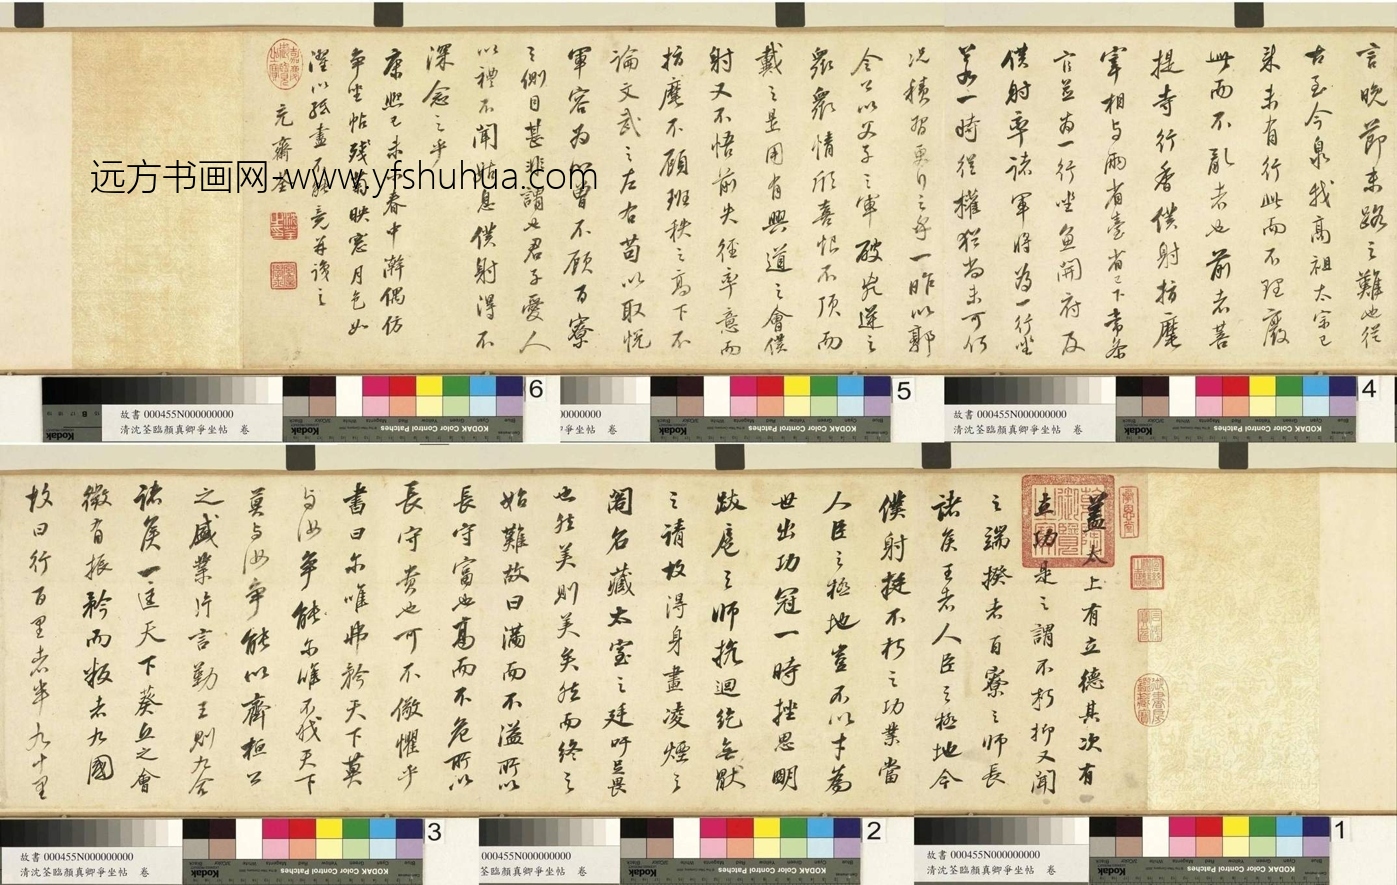 蓋太上有立德其次有
立功是之謂不朽抑又聞
之端揆者百寮之師長
諸侯王者人臣之極地今
僕射挺不朽之功業當
人臣之極地豈不以才為
世出功冠一時挫思明
跋扈之師抗迴紇無厭
之請故得身畫凌煙之
閣名藏太室之廷吁足畏
也然美則美矣然而終之
始難故曰滿而不溢所以
長守富也高而不危所以
長守貴也可不儆懼乎
書曰爾唯弗矜天下莫
與汝爭能爾唯不伐天下
莫與汝爭能以齊桓公
之盛業片言勤王則九合
諸侯一匡天下葵丘之會
微有振矜而叛者九國
故曰行百里者半九十里
言晚節末路之難也從
古至今泉我高祖太宗已
來未有行此而不理廢
此而不亂者也前者菩
提寺行香僕射指麾
宰相與兩省臺省已下常參
官並為一行坐魚開府及
僕射率諸軍將為一行坐
若一時從權猶尚未可何
況積習更行之乎一昨以郭
令公以父子之軍破兇逆之
眾眾情欣喜恨不頂而
戴之是用有興道之會僕
射又不悟前失徑率意而
指麾不顧班秩之高下不
論文武之左右苟以取悅
軍容為心曾不顧百寮
之側目甚非謂也君子愛人
以禮不聞姑息僕射得不
深念之乎
康熙己未春中澣偶仿
爭坐帖殘映窗月色如
以紙盡不竟并識之
充齋荃
远方书画网-www.yfshuhua.com
故書 000455N000000000
清沈荃臨顏真卿爭坐帖 卷
6
5
故書 000455N000000000
清沈荃臨顏真卿爭坐帖 卷
4
故書 000455N000000000
清沈荃臨顏真卿爭坐帖 卷
3
000455N000000000
清沈荃臨顏真卿爭坐帖 卷
2
故書 000455N000000000
清沈荃臨顏真卿爭坐帖 卷
1
KODAK Color Control Patches
Kodak